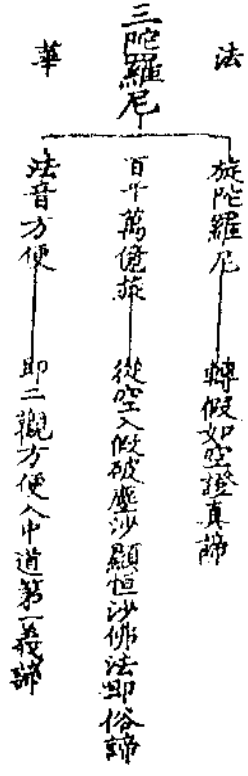 法華
三陀羅尼
旋陀羅尼
轉假如空證真諦
百千萬億旋
從空入假破塵沙顯恒沙佛法即俗諦
法音方便
即二觀方便入中道第一義諦